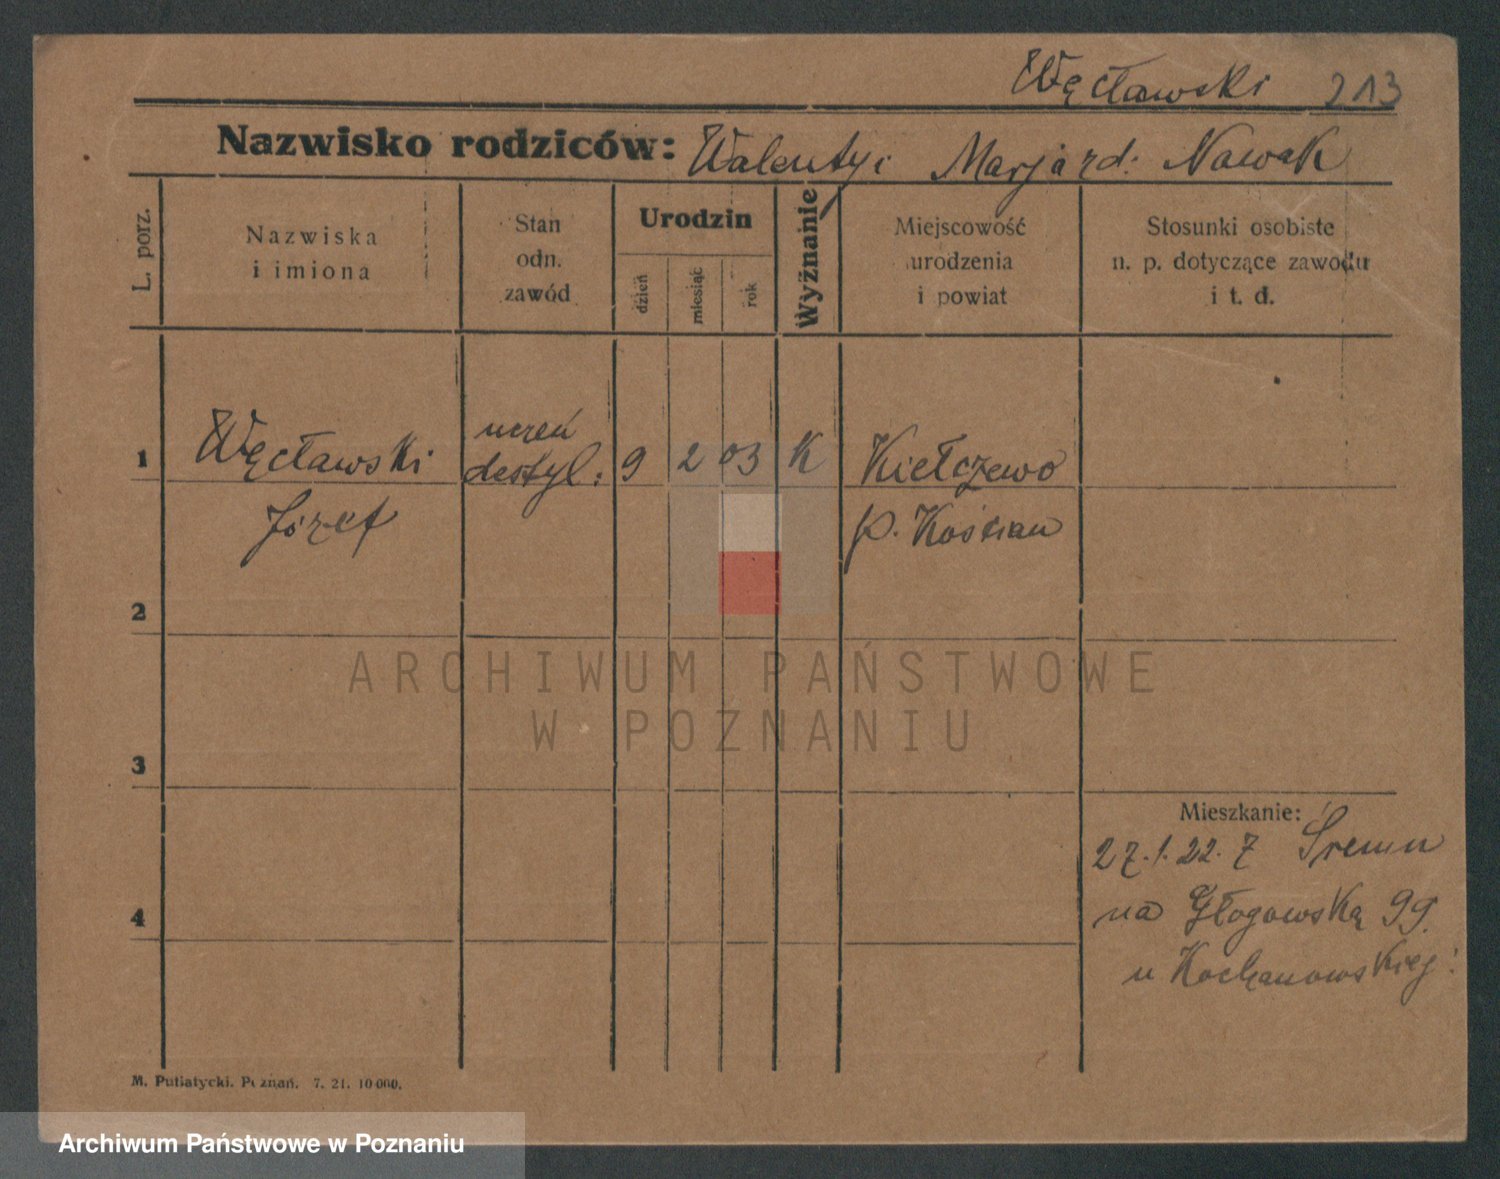 Węcławski 213
Nazwisko rodziców: Walenty i Marja rd: Nowak
L. porz.
Nazwiska
i imiona
Stan
odn.
zawód
Urodzin
dzień
miesiąc
rok
Wyznanie
Miejscowość
urodzenia
i powiat
Stosunki osobiste
n. p. dotyczące zawodu
i t. d.
1 Węcławski uczeń destyl: 9 2 03 K Kiełczewo
Józef p. Kościan
2
3
Mieszkanie:
27.1.22. z Śremu
4 na Głogowską 99.
u Kochanowskieg:
M. Putiatycki. Poznań. 7. 21. 10 000.
ARCHIWUM PAŃSTWOWE
W POZNANIU
Archiwum Państwowe w Poznaniu